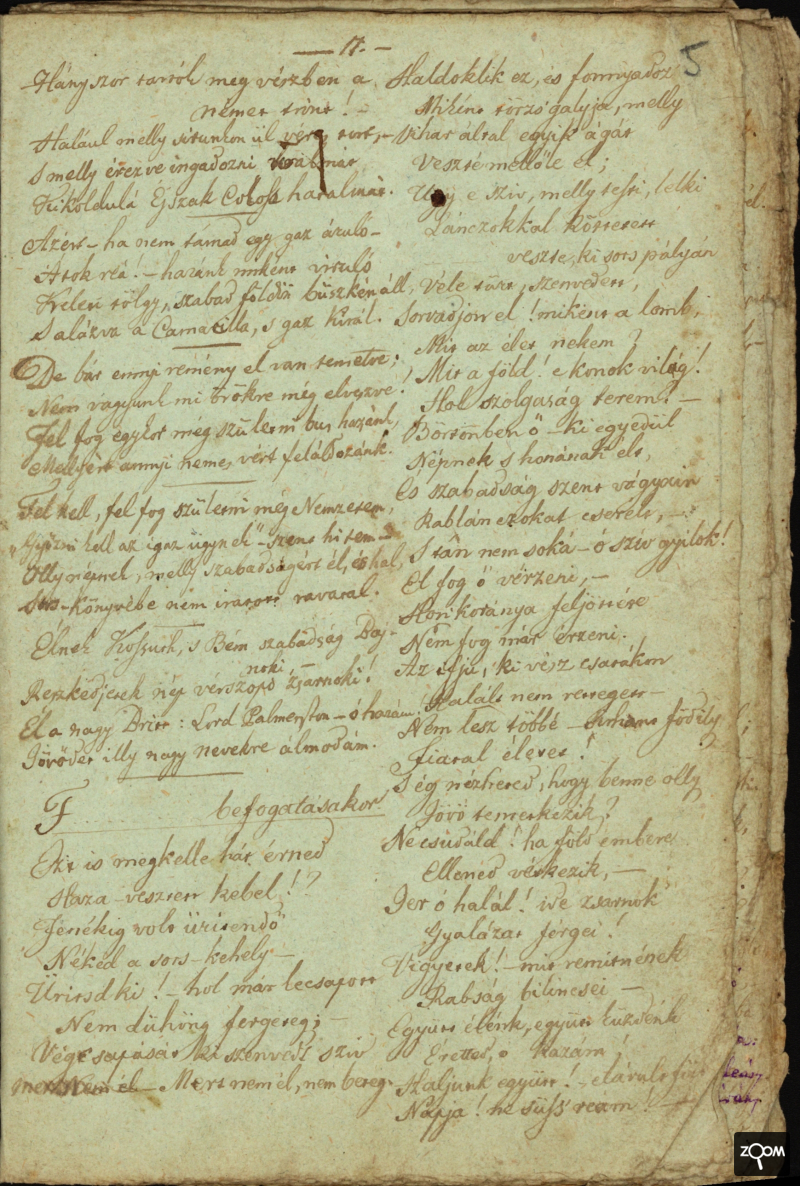 — 17. —
5
Hányszor tartóh meg vészben a
német trónt! —
Halául melly situnkon ül vért tort, —
S melly érezve ingadozni
Kikoldulá Éjszak Coloss hatalmát.
Azért — ha nem támad egy gaz áruló —
Átok réá! — hazánk miként viruló
Keleti tölgy, szabad földön büszkén áll,
S alázva a Camarilla, s gaz Király.
De bár ennyi remény el van temetve;
Nem vagyunk mi örökre még elveszve!
Fel fog egykor még születni bus hazánk,
Mellyért annyi nemes vért feláldozánk.
Fel kell, fel fog születni még Nemzetem,
„Győzni kell az igaz ügynek" — szent hitem —
Olly népnek, melly szabadságért él, és hal,
Sors-könyvébe nem iratott ravatal.
Élnek Kossuth, s Bem szabadság Baj-
noki, —
Reszkedjetek nép vérszopó zsarnoki!
Él a nagy Britt: Lord Palmerston — ó hazám!
Jövődet illy nagy nevekre álmodám.
F....... befogatásakor
Ezt is megkelle hát érned
Haza-vesztett kebel!?
Fenékig volt ürítendő
Néked a sors-kehely —
Ürítsd ki! — hol már lecsapott
Nem dühöng fergeteg; —
Végcsapását ki szenvedt sziv
Mert nem él, nem beteg.
Haldoklik ez, és fonnyadoz
Miként törzsgalyja, melly
Vihar által egyik ágát
Veszté mellőle el;
Ugy e sziv, melly testi, lelki
Lánczokkal köttetett
veszte, ki sors pályán
Véle tűrt, szenvedett,
Sorvadjon el! miként a lomb,
Mit az élet nekem?
Mit a föld! e konok világ!
Hol szolgaság terem. —
Börtönben ő — ki egyedül
Népnek s honának élt,
És szabadság szent vágyain
Rablánczokat cserélt, —
S tán nem soká — o sziv gyilok!
El fog ő vérzeni, —
Hon koránya feljöttére
Nem fog már érzeni.
Az ifju, ki vész csatákon
Halált nem rettegett —
Nem lesz többé — födély
Fiatal életet!
S ég nézheted, hogy benne olly
Jövő temetkezik?
Ne csudáld! ha föld embere
Ellened vétkezik, —
Jer ó halál! ti zsarnok
Gyalázat férgei!
Vigyetek! — mit rémitnének
Rabság bilincsei —
Együtt élénk, együtt küzdénk
Éretted, o Hazám!
Haljunk együtt! — elárult föld
Napja! ne süss reám! —
ZOOM